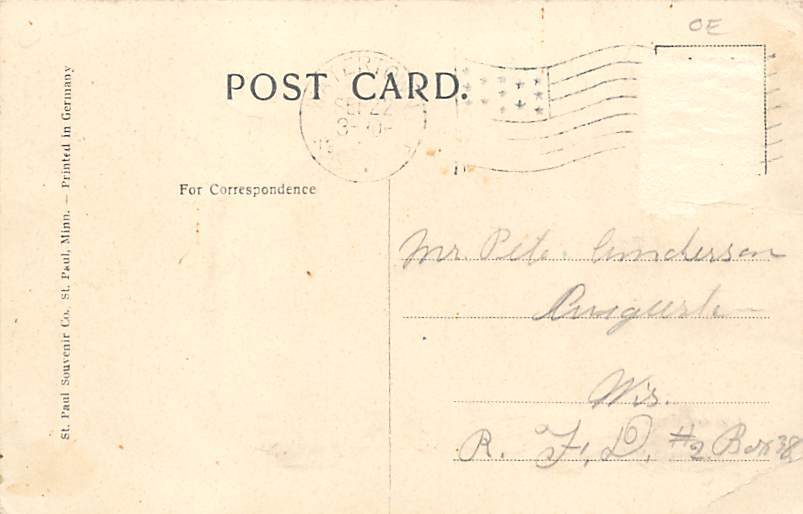 OE
POST CARD.
SEP 22
For Correspondence
St. Paul Souvenir Co. St. Paul, Minn. — Printed in Germany
Mr. Pete Anderson
Augusta
Wis.
R. F. D. #2 Box 38